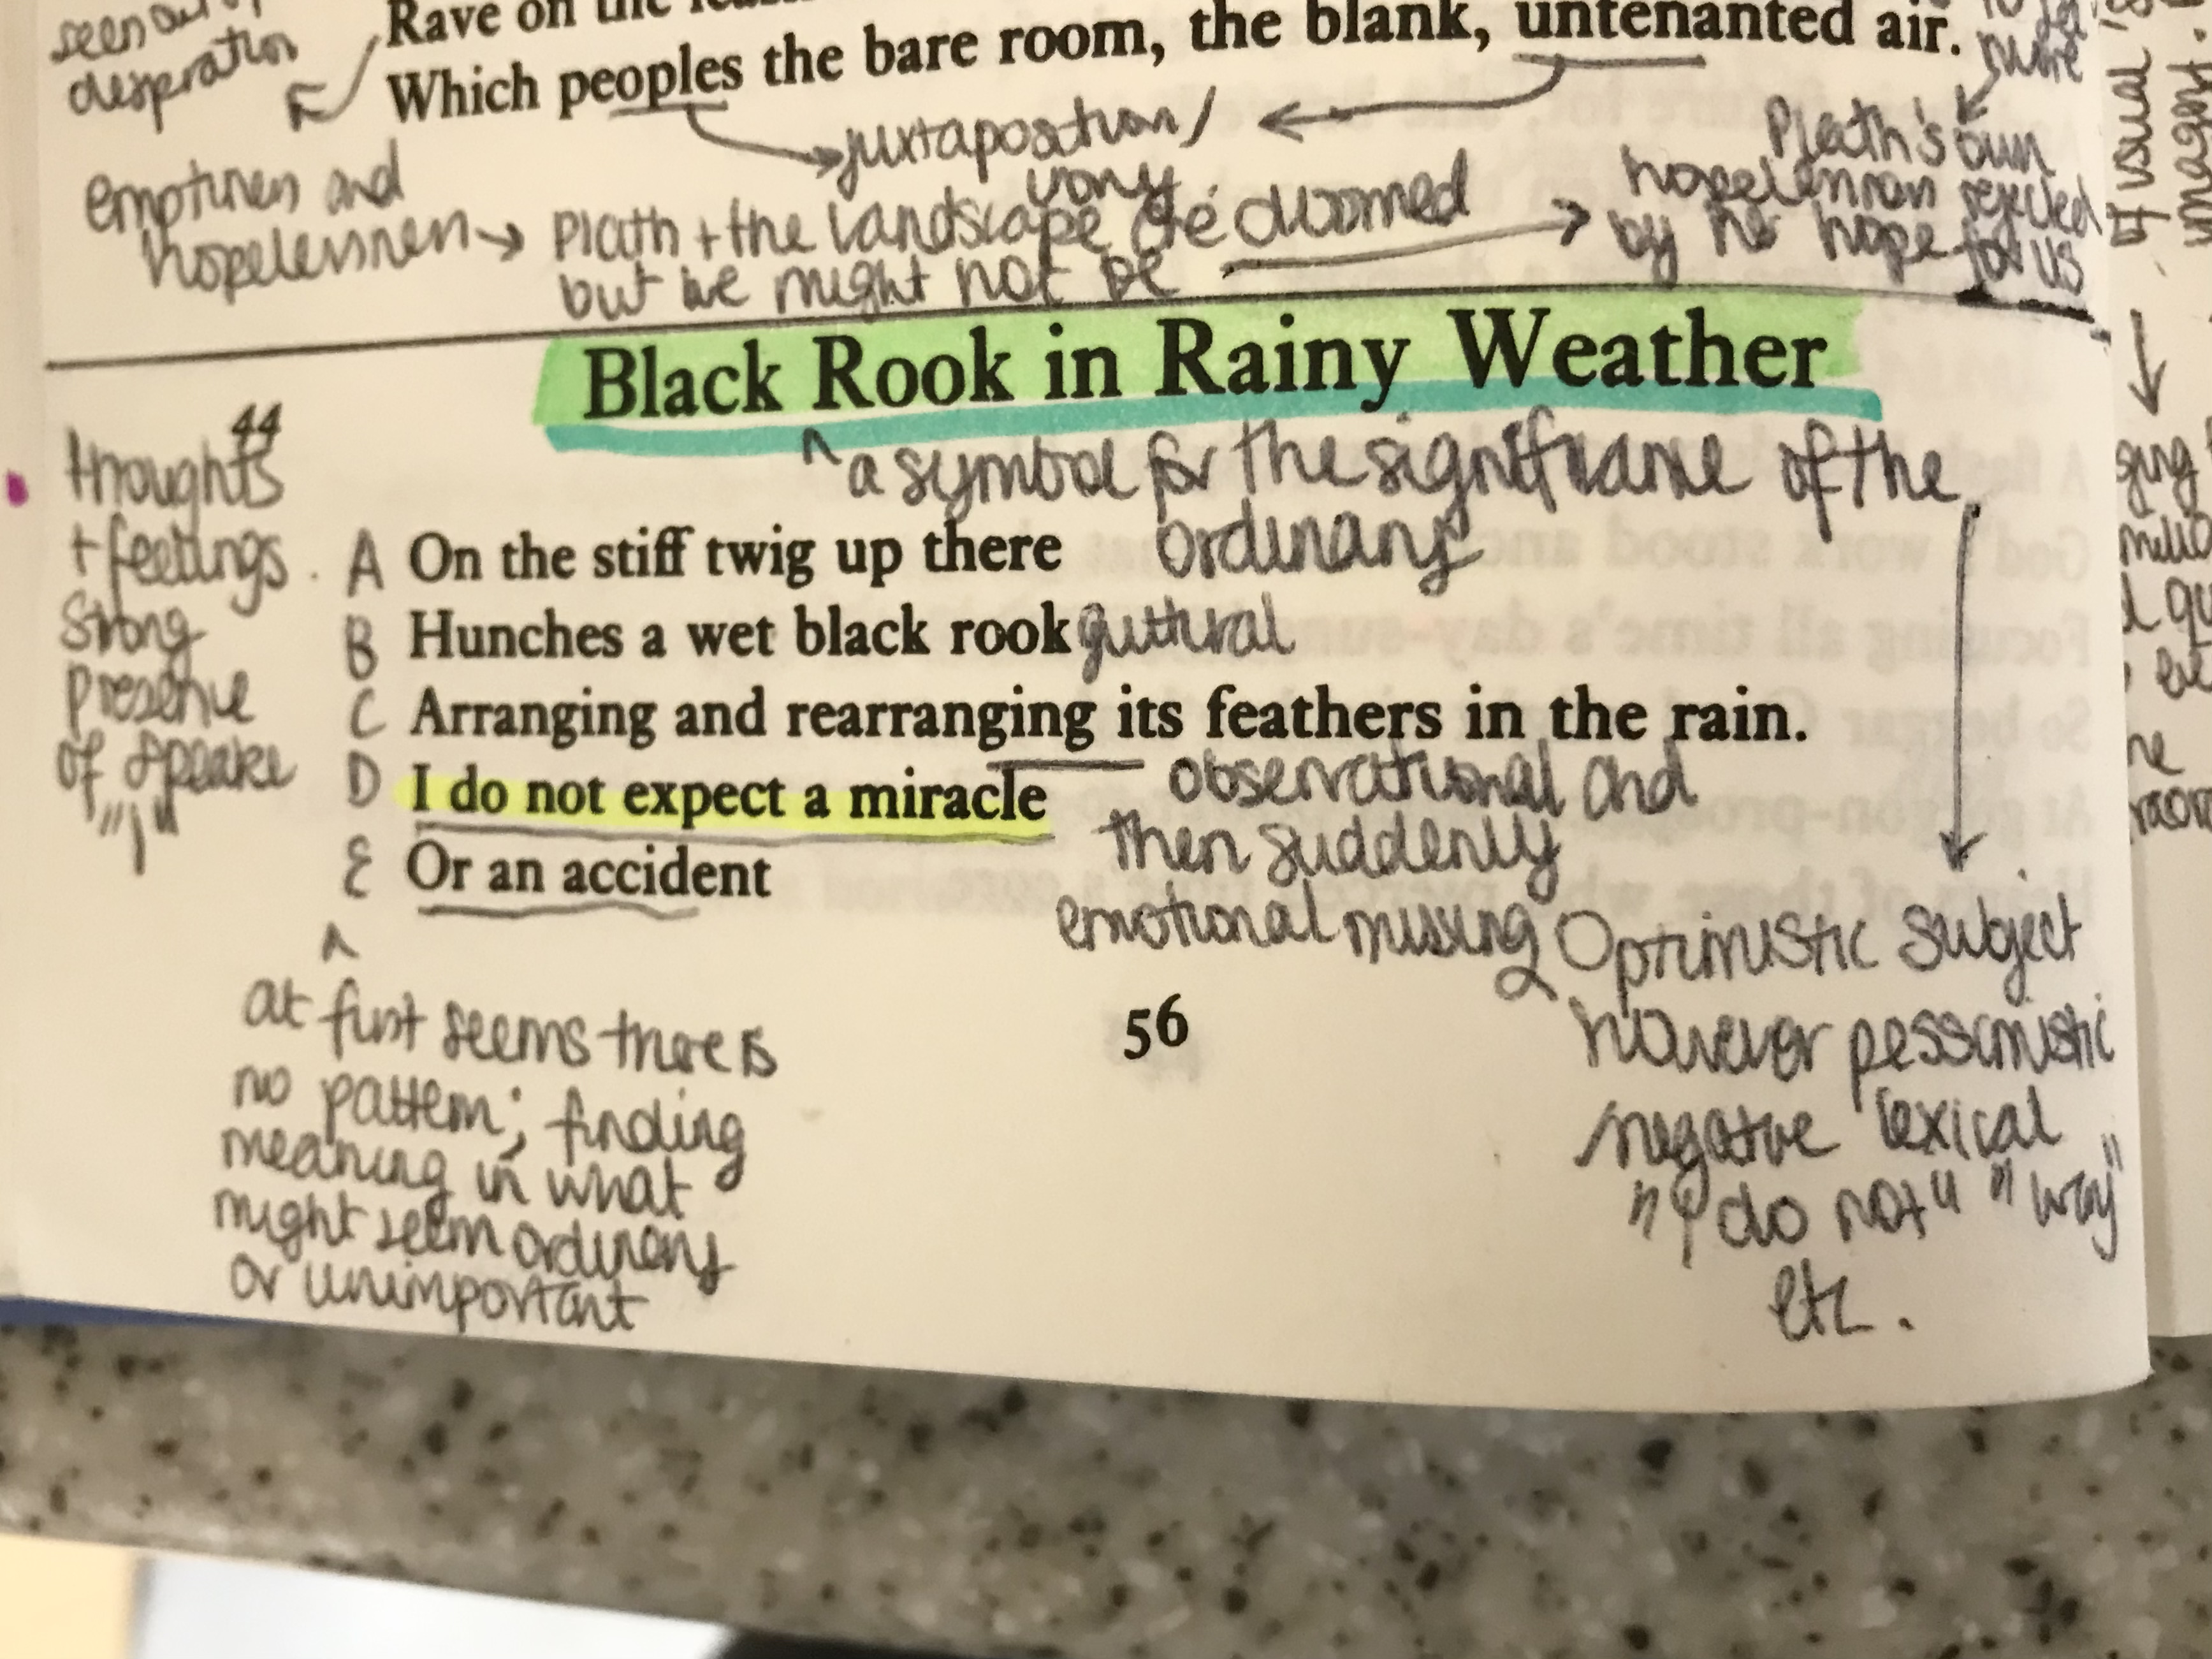 seen
desperation
Rave on the
Which peoples the bare room, the blank, untenanted air.
more
juxtaposition/
irony
emptiness and
hopelessness → Plath + the landscape are doomed
but we might not be
Plath's own
hopelessness rejected
by her hope
for us
of usual
Black Rook in Rainy Weather
a symbol for the significance of the
ordinary
44
thoughts
+ feelings
strong
presence
of speake
"I"
A On the stiff twig up there
B Hunches a wet black rook gutteral
C Arranging and rearranging its feathers in the rain.
D I do not expect a miracle
E Or an accident
observational and
then suddenly
emotional musing
Optimistic subject
however pessimistic
negative lexical
"I do not" "way"
etc.
at first seems there is
no pattern; finding
meaning in what
might seem ordinary
or unimportant
56